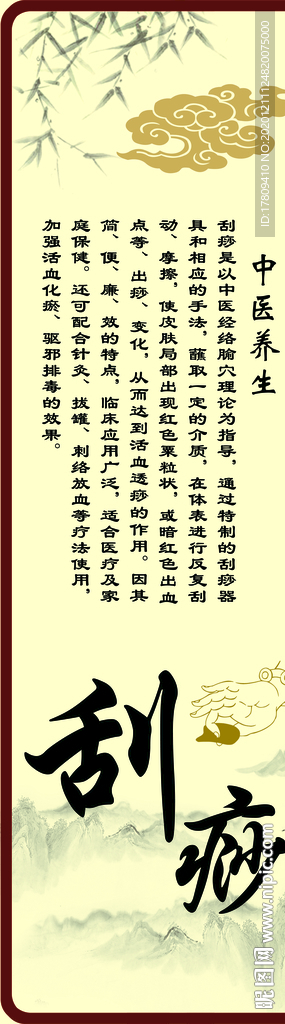 中医养生
刮痧是以中医经络腧穴理论为指导，通过特制的刮痧器
具和相应的手法，蘸取一定的介质，在体表进行反复刮
动、摩擦，使皮肤局部出现红色粟粒状，或暗红色出血
点等、出痧、变化，从而达到活血透痧的作用。因其
简、便、廉、效的特点，临床应用广泛，适合医疗及家
庭保健。还可配合针灸、拔罐、刺络放血等疗法使用，
加强活血化瘀、驱邪排毒的效果。
刮痧
ID:17809410 NO:20201211124820075000
昵图网 www.nipic.com